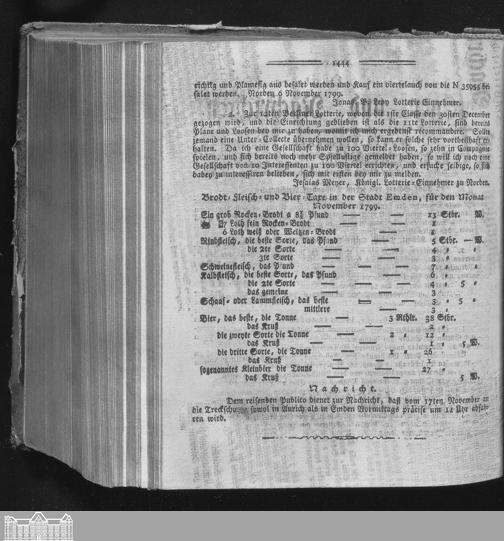 1444
richtig und Planmeßig aus bezalet werden und Kauf ein viertelauch von die N 35955 be-
zalet werden. Norden 6 November 1799.
Jonas B. Levy Lotterie Einnehmer.
2. Zur 12ten Berliner Lotterie, wovon die 1ste Classe den 30sten December
gezogen wird, und die Einrichtung geblieben ist als die 11te Lotterie, sind bereits
Plane und Loosen bey mir zu haben, womit ich mich ergebenst recommandere. Sollte
jemand eine Unter-Collecte übernehmen wollen, so kann er solche sehr vortheilhaft er-
halten. Da ich eine Gesellschaft habe zu 100 Viertel-Loosen, so zehn in Compagnie
spielen, und sich bereits noch mehr Spiellustige gemeldet haben, so will ich noch eine
Gesellschaft von 20 Interessenten zu 100 Viertel errichten, und ersuche selbige, so sich
dabey zu interessiren belieben, sich mit ersten bey mir zu melden.
Jesaias Meyer, Königl. Lotterie-Einnehmer zu Norden.
Brodt- Fleisch- und Bier-Taxe in der Stadt Emden, für den Monat
November 1799.
Ein grob Rocken-Brodt a 8½ Pfund — — 13 Stbr. W.
Loth fein Rocken-Brodt — — 1
6 Loth weiß oder Weitzen-Brodt — — 1
Rindfleisch, die beste Sorte, das Pfund — — 5 Stbr. — W.
die 2te Sorte — — 4 " "
3te Sorte — — 3 "
Schweinefleisch, das Pfund — — 7 " "
Kalbfleisch, die beste Sorte, das Pfund — — 6 "
die 2te Sorte — — 4 " 5 "
das gemeine — — 3 "
Schaaf- oder Lammfleisch, das beste — — 3 " 5 "
mittlere — — 3 "
Bier, das beste, die Tonne — 3 Rthlr. 38 Stbr.
das Kruß — — 2 "
die zweyte Sorte die Tonne — 2 " 12 "
das Kruß — — 1 " 5 W.
die dritte Sorte, die Tonne — 1 " 26
das Kruß — — 1 "
sogenanntes Kleinbier die Tonne — — 27 "
das Kruß — — 5 W.
Nachricht.
Dem reisenden Publico dienet zur Nachricht, daß vom 17ten November an
die Treckschuyte sowol in Aurich als in Emden Vormittags präcise um 11 Uhr abfah-
ren wird.